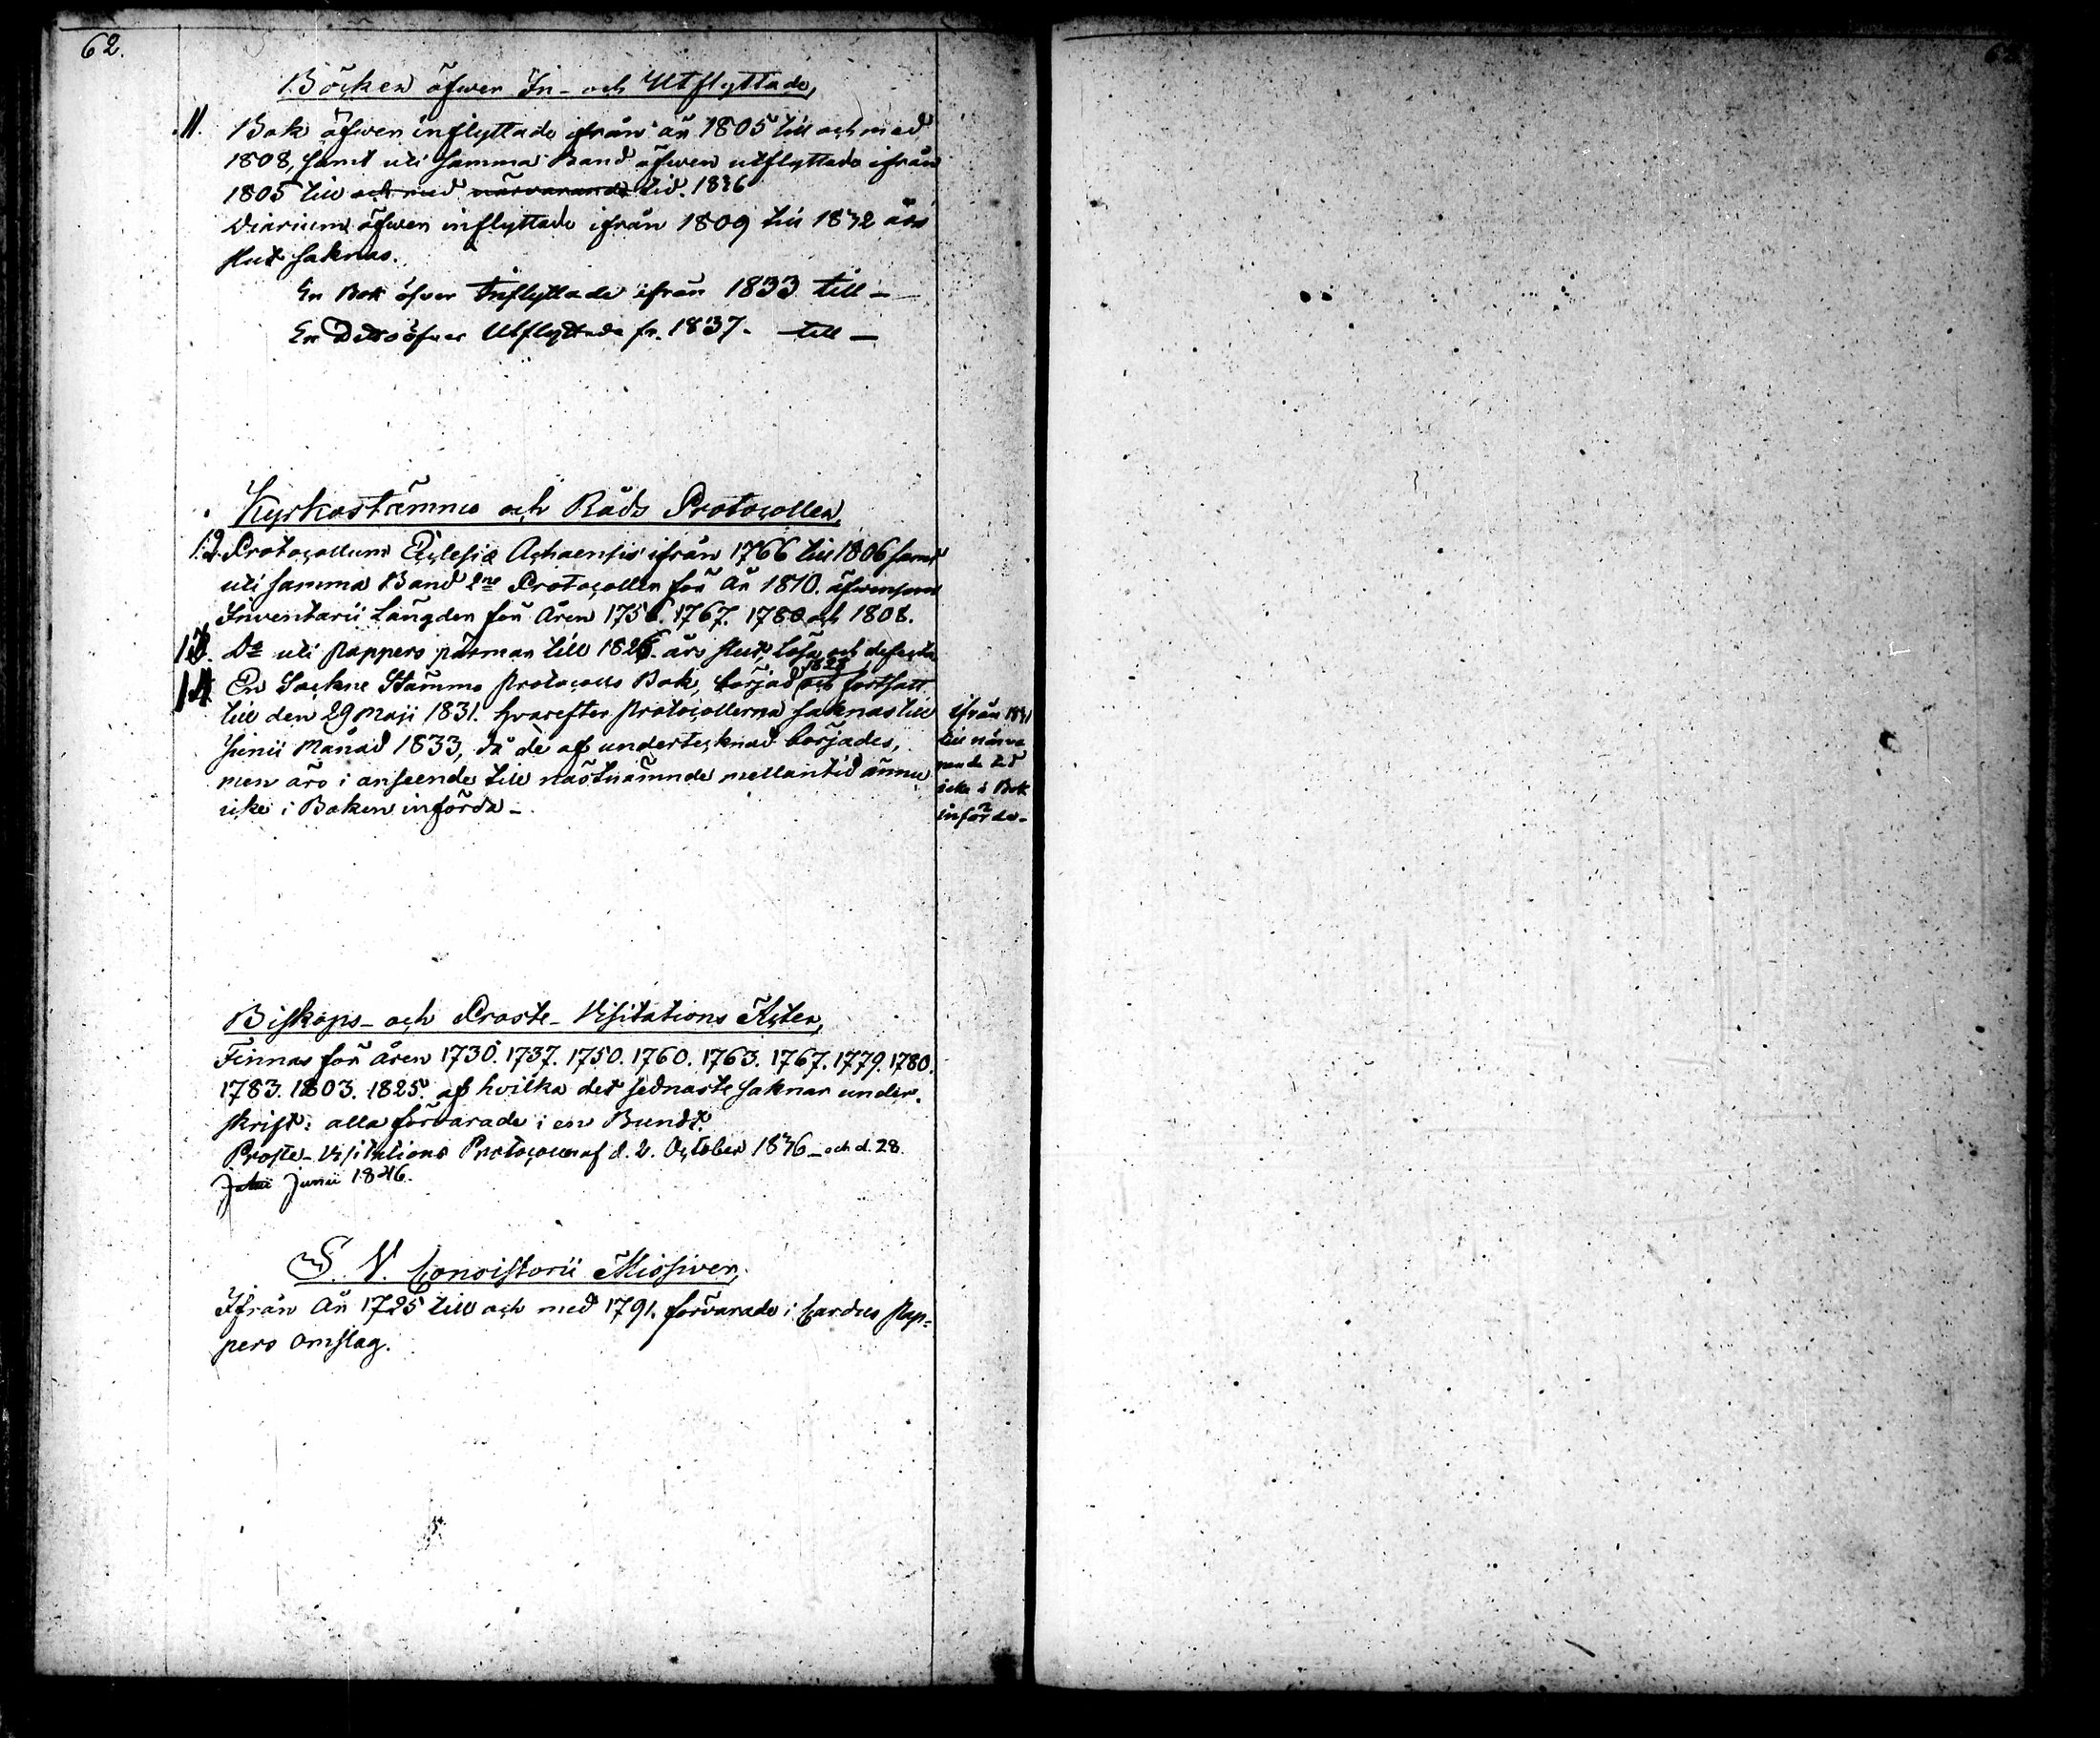 62.
Böcker öfwer In- och Utflyttade,
11. Bok öfwer inflyttade ifrån år 1805 till och med
1808, samt uti samma Band öfwer utflyttade ifrån
1805 till och med närvarande tid. 1836
Diarium öfwer inflyttade ifrån 1809 till 1832 års
slut saknas.
En Bok öfver Inflyttade ifrån 1833 till -
En Ditto öfver Utflyttade fr. 1837. till -
Kyrkostämmo och Råds Protocoller,
12. Protocollum Eclesiæ Achaensis ifrån 1766 till 1806 samt
uti samma Band 2ne Protocoller för år 1810. äfwensom
Inventarii Längder för Åren 1756. 1767. 1780 och 1808.
13. Do uti pappers pärmar till 1826. års slut, lösa och defecta
1828
14 En Sockne Stämmo protocolls Bok, börjad och fortsatt
till den 29 Maji 1831. hvarefter protocollerna saknas till
Junii Månad 1833, då de af undertecknad börjades,
men äro i anseende till nästnämnde mellantid ännu
icke i Boken införda -
ifrån 1831
till närva
rande tid
icke i Bok
införde -
Biskops- och Proste- Visitations Acter,
Finnas för åren 1730. 1737. 1750. 1760. 1763. 1767. 1779. 1780.
1783. 1803. 1825. af hvilka det sednaste saknar under-
skrift: alla förvarade i en Bundt.
Proste- Visitations Protocoller af d. 2. October 1836 - och d. 28.
Julii Junii 1846.
S. V. Consistorii Missiver,
Ifrån År 1725 till och med 1791. förvarade i Cardus pap=
pers omslag.